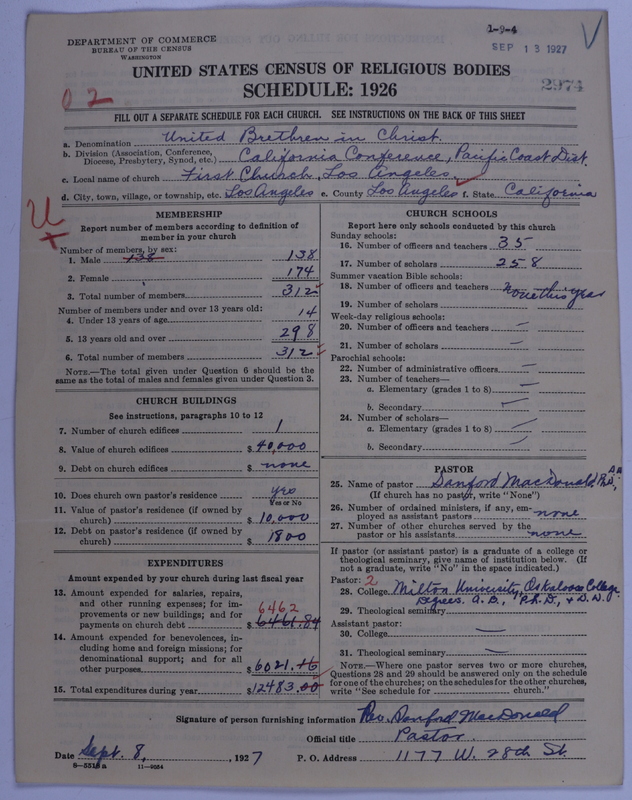 DEPARTMENT OF COMMERCE
BUREAU OF THE CENSUS
WASHINGTON
1-9-4
SEP 13 1927
V
UNITED STATES CENSUS OF RELIGIOUS BODIES
SCHEDULE: 1926
2974
02
FILL OUT A SEPARATE SCHEDULE FOR EACH CHURCH. SEE INSTRUCTIONS ON THE BACK OF THIS SHEET
a. Denomination United Brethren in Christ
b. Division (Association, Conference, Diocese, Presbytery, Synod, etc.) California Conference, Pacific Coast Dist.
c. Local name of church First Church, Los Angeles
d. City, town, village, or township, etc. Los Angeles e. County Los Angeles f. State California
U
MEMBERSHIP
Report number of members according to definition of
member in your church
Number of members, by sex:
1. Male 138 138
2. Female 174
3. Total number of members 312
Number of members under and over 13 years old:
4. Under 13 years of age 14
5. 13 years old and over 298
6. Total number of members 312
NOTE.—The total given under Question 6 should be
same as the total of males and females given under Question 3.
CHURCH BUILDINGS
See instructions, paragraphs 10 to 12
7. Number of church edifices 1
8. Value of church edifices $ 40,000
9. Debt on church edifices $ none
10. Does church own pastor's residence yes
Yes or No
11. Value of pastor's residence (if owned by
church) $ 10,000
12. Debt on pastor's residence (if owned by
church) $ 1800
EXPENDITURES
Amount expended by your church during last fiscal year
13. Amount expended for salaries, repairs,
and other running expenses; for improvements
or new buildings; and for 6462
payments on church debt $ 6461.84
14. Amount expended for benevolences, including
home and foreign missions; for
denominational support; and for all
other purposes $ 6021.16
15. Total expenditures during year $ 12483.00
CHURCH SCHOOLS
Report here only schools conducted by this church
Sunday schools:
16. Number of officers and teachers 35
17. Number of scholars 258
Summer vacation Bible schools:
18. Number of officers and teachers none this year
19. Number of scholars
Week-day religious schools:
20. Number of officers and teachers —
21. Number of scholars —
Parochial schools:
22. Number of administrative officers —
23. Number of teachers—
a. Elementary (grades 1 to 8) —
b. Secondary —
24. Number of scholars—
a. Elementary (grades 1 to 8) —
b. Secondary —
PASTOR
25. Name of pastor Sanford MacDonald,
(If church has no pastor, write "None")
26. Number of ordained ministers, if any, employed
as assistant pastors none
27. Number of other churches served by the
pastor or his assistants none
If pastor (or assistant pastor) is a graduate of a college or
theological seminary, give name of institution below. (If
not a graduate, write "No" in the space indicated.)
Pastor: 2
28. College Milton University, Oskaloosa College
Degrees. A.B., Ph.D., & D.D.
29. Theological seminary
Assistant pastor:
30. College —
31. Theological seminary —
NOTE.—Where one pastor serves two or more churches,
Questions 28 and 29 should be answered only on the schedule
for one of the churches; on the schedules for the other churches,
write "See schedule for church."
Signature of person furnishing information Rev. Sanford MacDonald
Official title Pastor.
Date Sept. 8, , 1927 P. O. Address 1177 W. 28th St.
8-5518a 11-9554